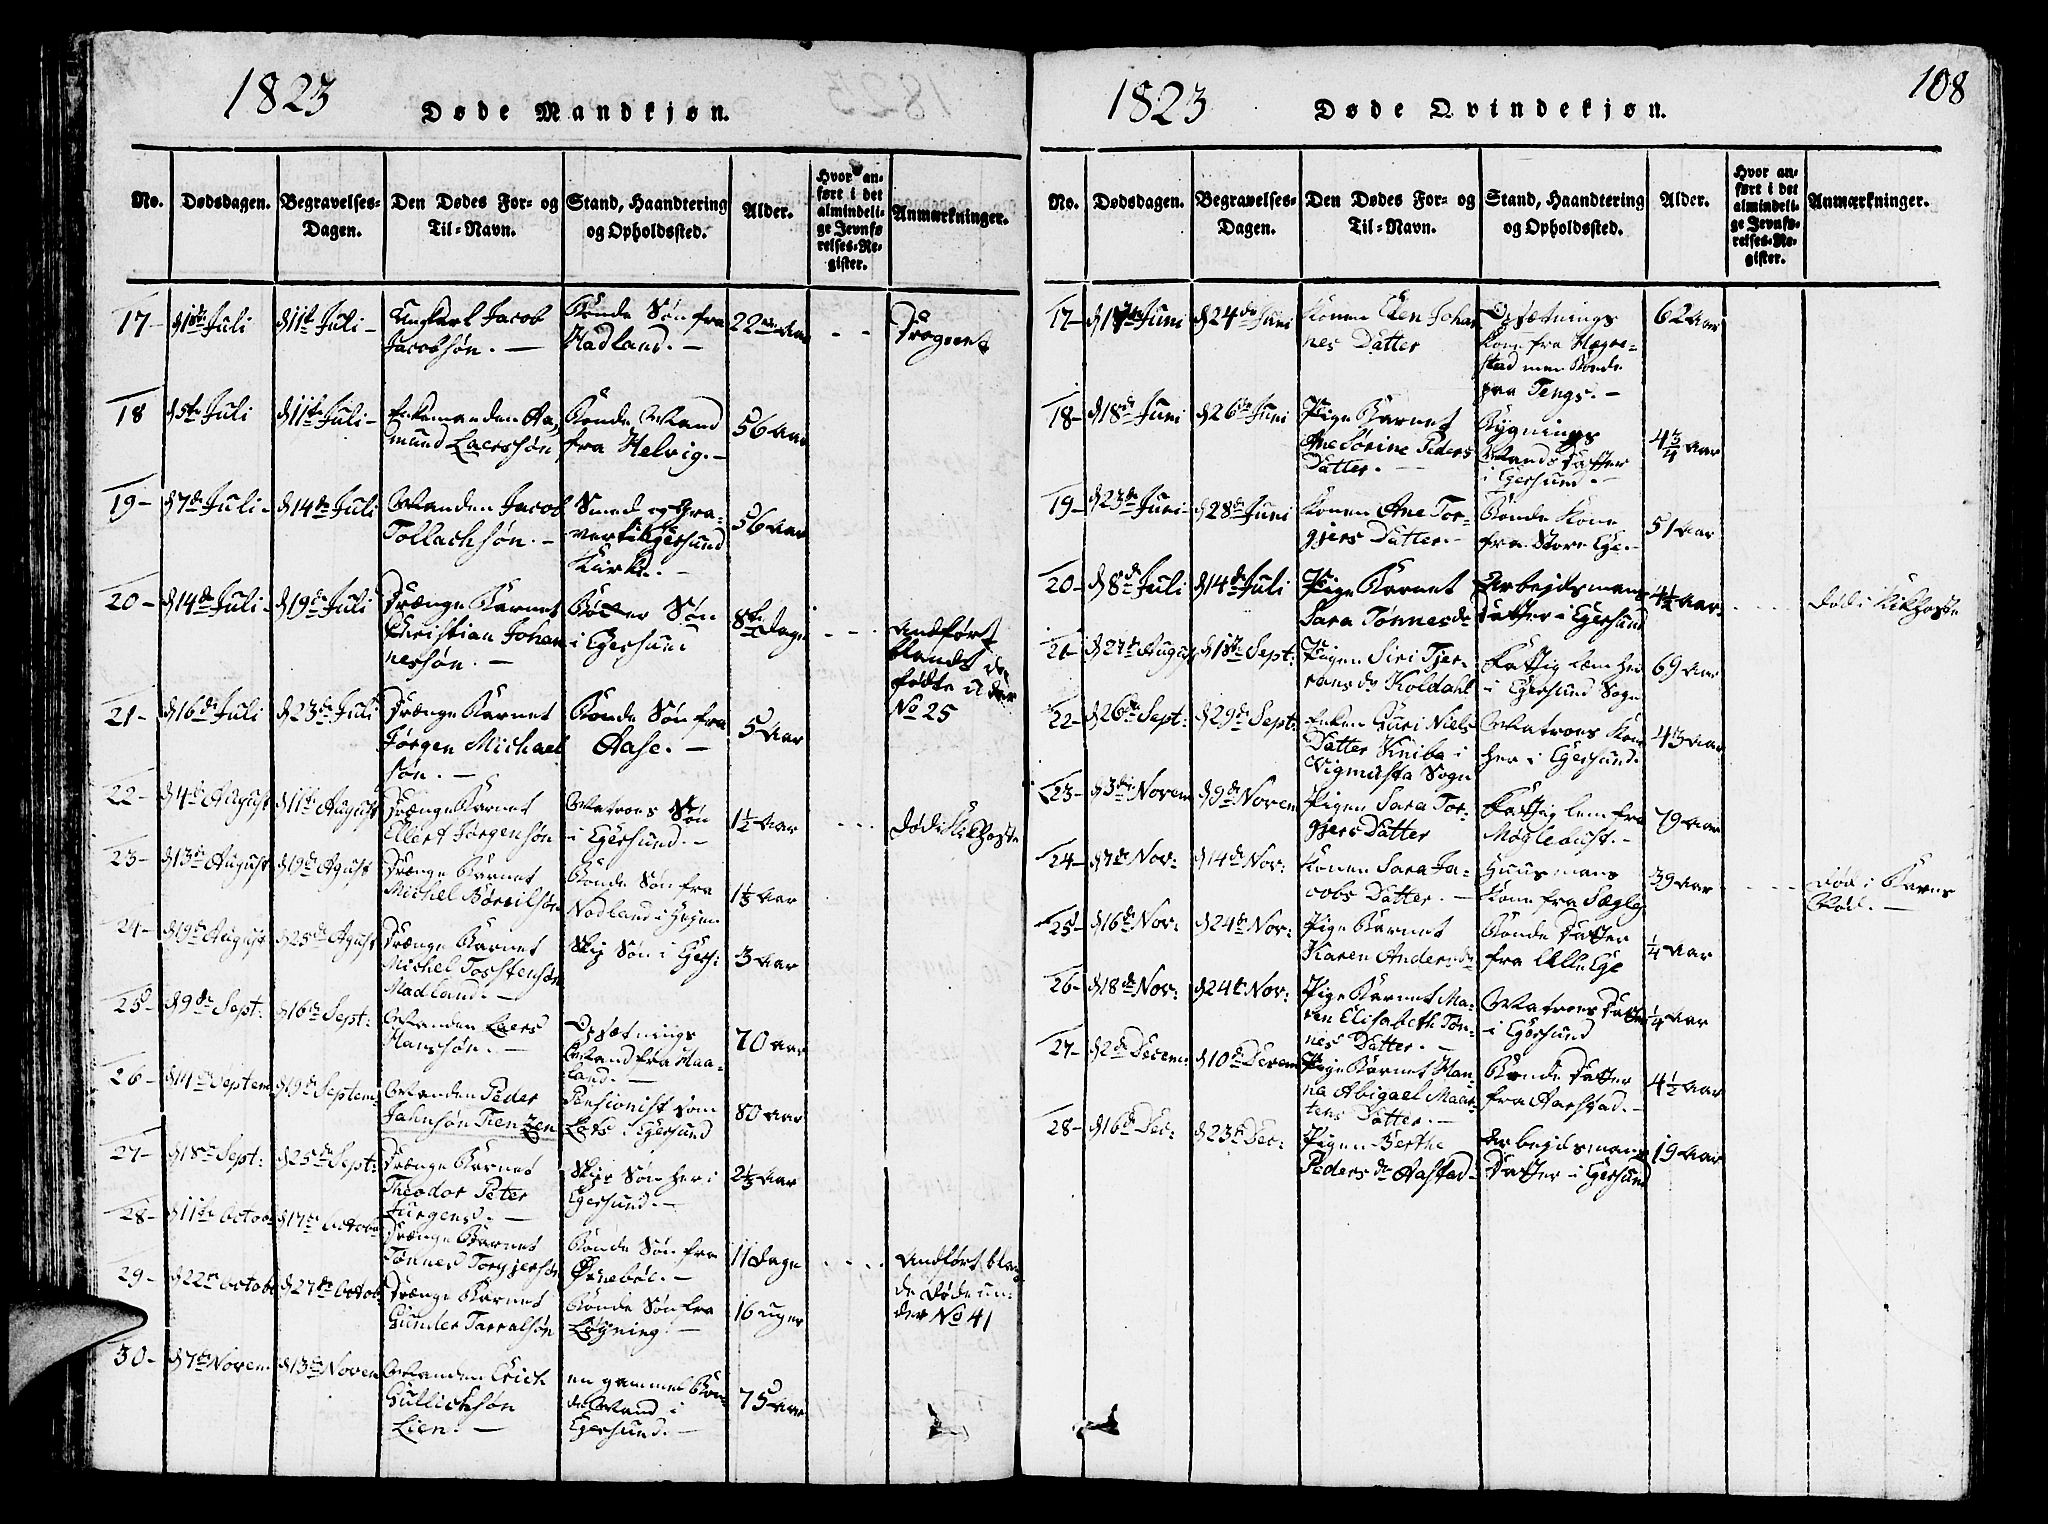 1823
Døde Mandkjøn.
No.
Dødsdagen.
Begravelses-
Dagen.
Den Dødes For- og
Til-Navn.
Stand, Haandtering
og Opholdssted.
Alder.
Hvor an-
ført i det
almindeli-
ge Jevnfø-
relses-Re-
gister.
Anmærkninger.
17 - d 1ste Juli d 11te Juli - Ungkarl Jacob
Jacobsøn. -
Bonde Søn fra
Hadland. -
22 Aar
18 d 5te Juli d 11te Juli - Enkemanden Aa-
mund Laerssøn
Bonde Mand
fra Helvig. -
56 Aar
19 - d 7de Juli - d 14de Juli Manden Jacob
Tollachsøn. -
Smed og Gra-
ver til Egersund
Kirke. -
56 Aar
20 - d 14de Juli - d 19de Juli Drænge Barnet
Christian Johan-
nessøn. -
Søn
i Egersund
8te Dage
Andført
blandt de
fødte under
No 25
21 - d 16de Juli d 23de Juli Drænge Barnet
Jørgen Michael
søn. -
Bonde Søn fra
Aase. -
5 Aar
22 - d 4de August d 11te August Drænge Barnet
Ellert Jørgensøn
Matroes Søn
i Egersund. -
1½ Aar
Død i Kikhoste
23 - d 13de August d 19de Agust Drænge Barnet
Michel
Bonde Søn fra
Nodland i
Aar
24 - d 19de August d 25de Agust Drænge Barnet
Michel Torstensøn
Madland. -
Søn i Egers:
3 Aar
25 - d 9de Sept: d 16de Sept: Manden Laers
Hanssøn. -
Opsætnings
Mand fra Maa-
land. -
70 Aar
26 - d 14de Septem d 19de Septem. Manden Peder
Jahnsøn
Pensionist som
Lots i Egersund
80 Aar
27 - d 18de Sept: d 25de Sept: Drænge Barnet
Theodor Peter
Jurgens. -
Søn her i
Egersund. -
Aar
28 - d 11te Octob d 17de Octob Drænge Barnet
Tønnes Torgjersøn
Bonde Søn fra
11 Dage
Andført blan
de Døde un-
der No 41
29 - d 22de Octob d 27de Octob Drænge Barnet
Gunder Tarralsøn
Bonde Søn fra
Løgning. -
16 uger
30 - d 7de Novem d 13de Novem Manden Erich
Gullichsøn
Lien. -
en gammel Bon-
de Mand i
Egersund. -
75 Aar
1823
Døde Qvindekjøn.
108
No.
Dødsdagen.
Begravelses-
Dagen.
Den Dødes For- og
Til-Navn.
Stand, Haandtering
og Opholdssted.
Alder.
Hvor an-
ført i det
almindeli-
ge Jevnfø-
relses-Re-
gister.
Anmærkninger.
17 - d 17de Juni d 24de Juni Konen Elen Johan
nes Datter
Opsætnings
Kone fraÆgre-
stad men Boede
paa Tengs. -
62 Aar
18 - d 18de Juni d 26de Juni Pige Barnet
Ane Sørine Peders
Datter. -
Bygnings
Mands Datter
i Egersund. -
4¾ Aar
19 - d 23de Juni - d 28de Juni Konen Ane Tor-
gjers Datter. -
Bonde Kone
fra Store Ege. -
51 Aar
20 - d 8de Juli d 14de Juli Pige Barnet
Sara Tønnesda
Arbejdsmans
Datter i Egersund
4½ Aar
Død i Kikhoste
21 - d 27de August d 1ste Sept: Pigen Siri Tjer-
rans da Koldahl
Fattig Lem her
i Egersund Sogn
69 Aar
22 - d 26de Sept: d 29de Sept: Enken Guri Niels
Datter Kniba i
Vigmusta Sogn
Matroes Kone
her i Egersund.
43 Aar
23 - d 3de Novem d 9de Novem Pigen Sara Tor-
gjers Datter
Fattig lem fra
Møglebust. -
79 Aar
24 - d 7de Nov: d 14de Nov: Konen Sara Ja-
cobs Datter. -
Huusmans
Kone fra
39 Aar
Død i Barns
Nød. -
25 d 16de Nov: d 24de Nov: Pige Barnet
Karen Andersda
Bonde Datter
fra Lille Ege
¼ Aar
26 - d 18de Nov: d 24de Nov: Pige Barnet Ma-
ren Elisabeth Tøn-
nes Datter. -
Matroes Datter
i Egersund
¼ Aar
27 - d 2de Decem: d 10de Decem Pige Barnet Han-
na Abigael Maar-
tens Datter. -
Bonde Datter
fra Aarstad. -
4½ Aar
28 - d 16de Dec: d 23de Dec: Pigen Berthe
Peders da Aastad -
Arbejdsmans
Datter i Egersund
19 Aar